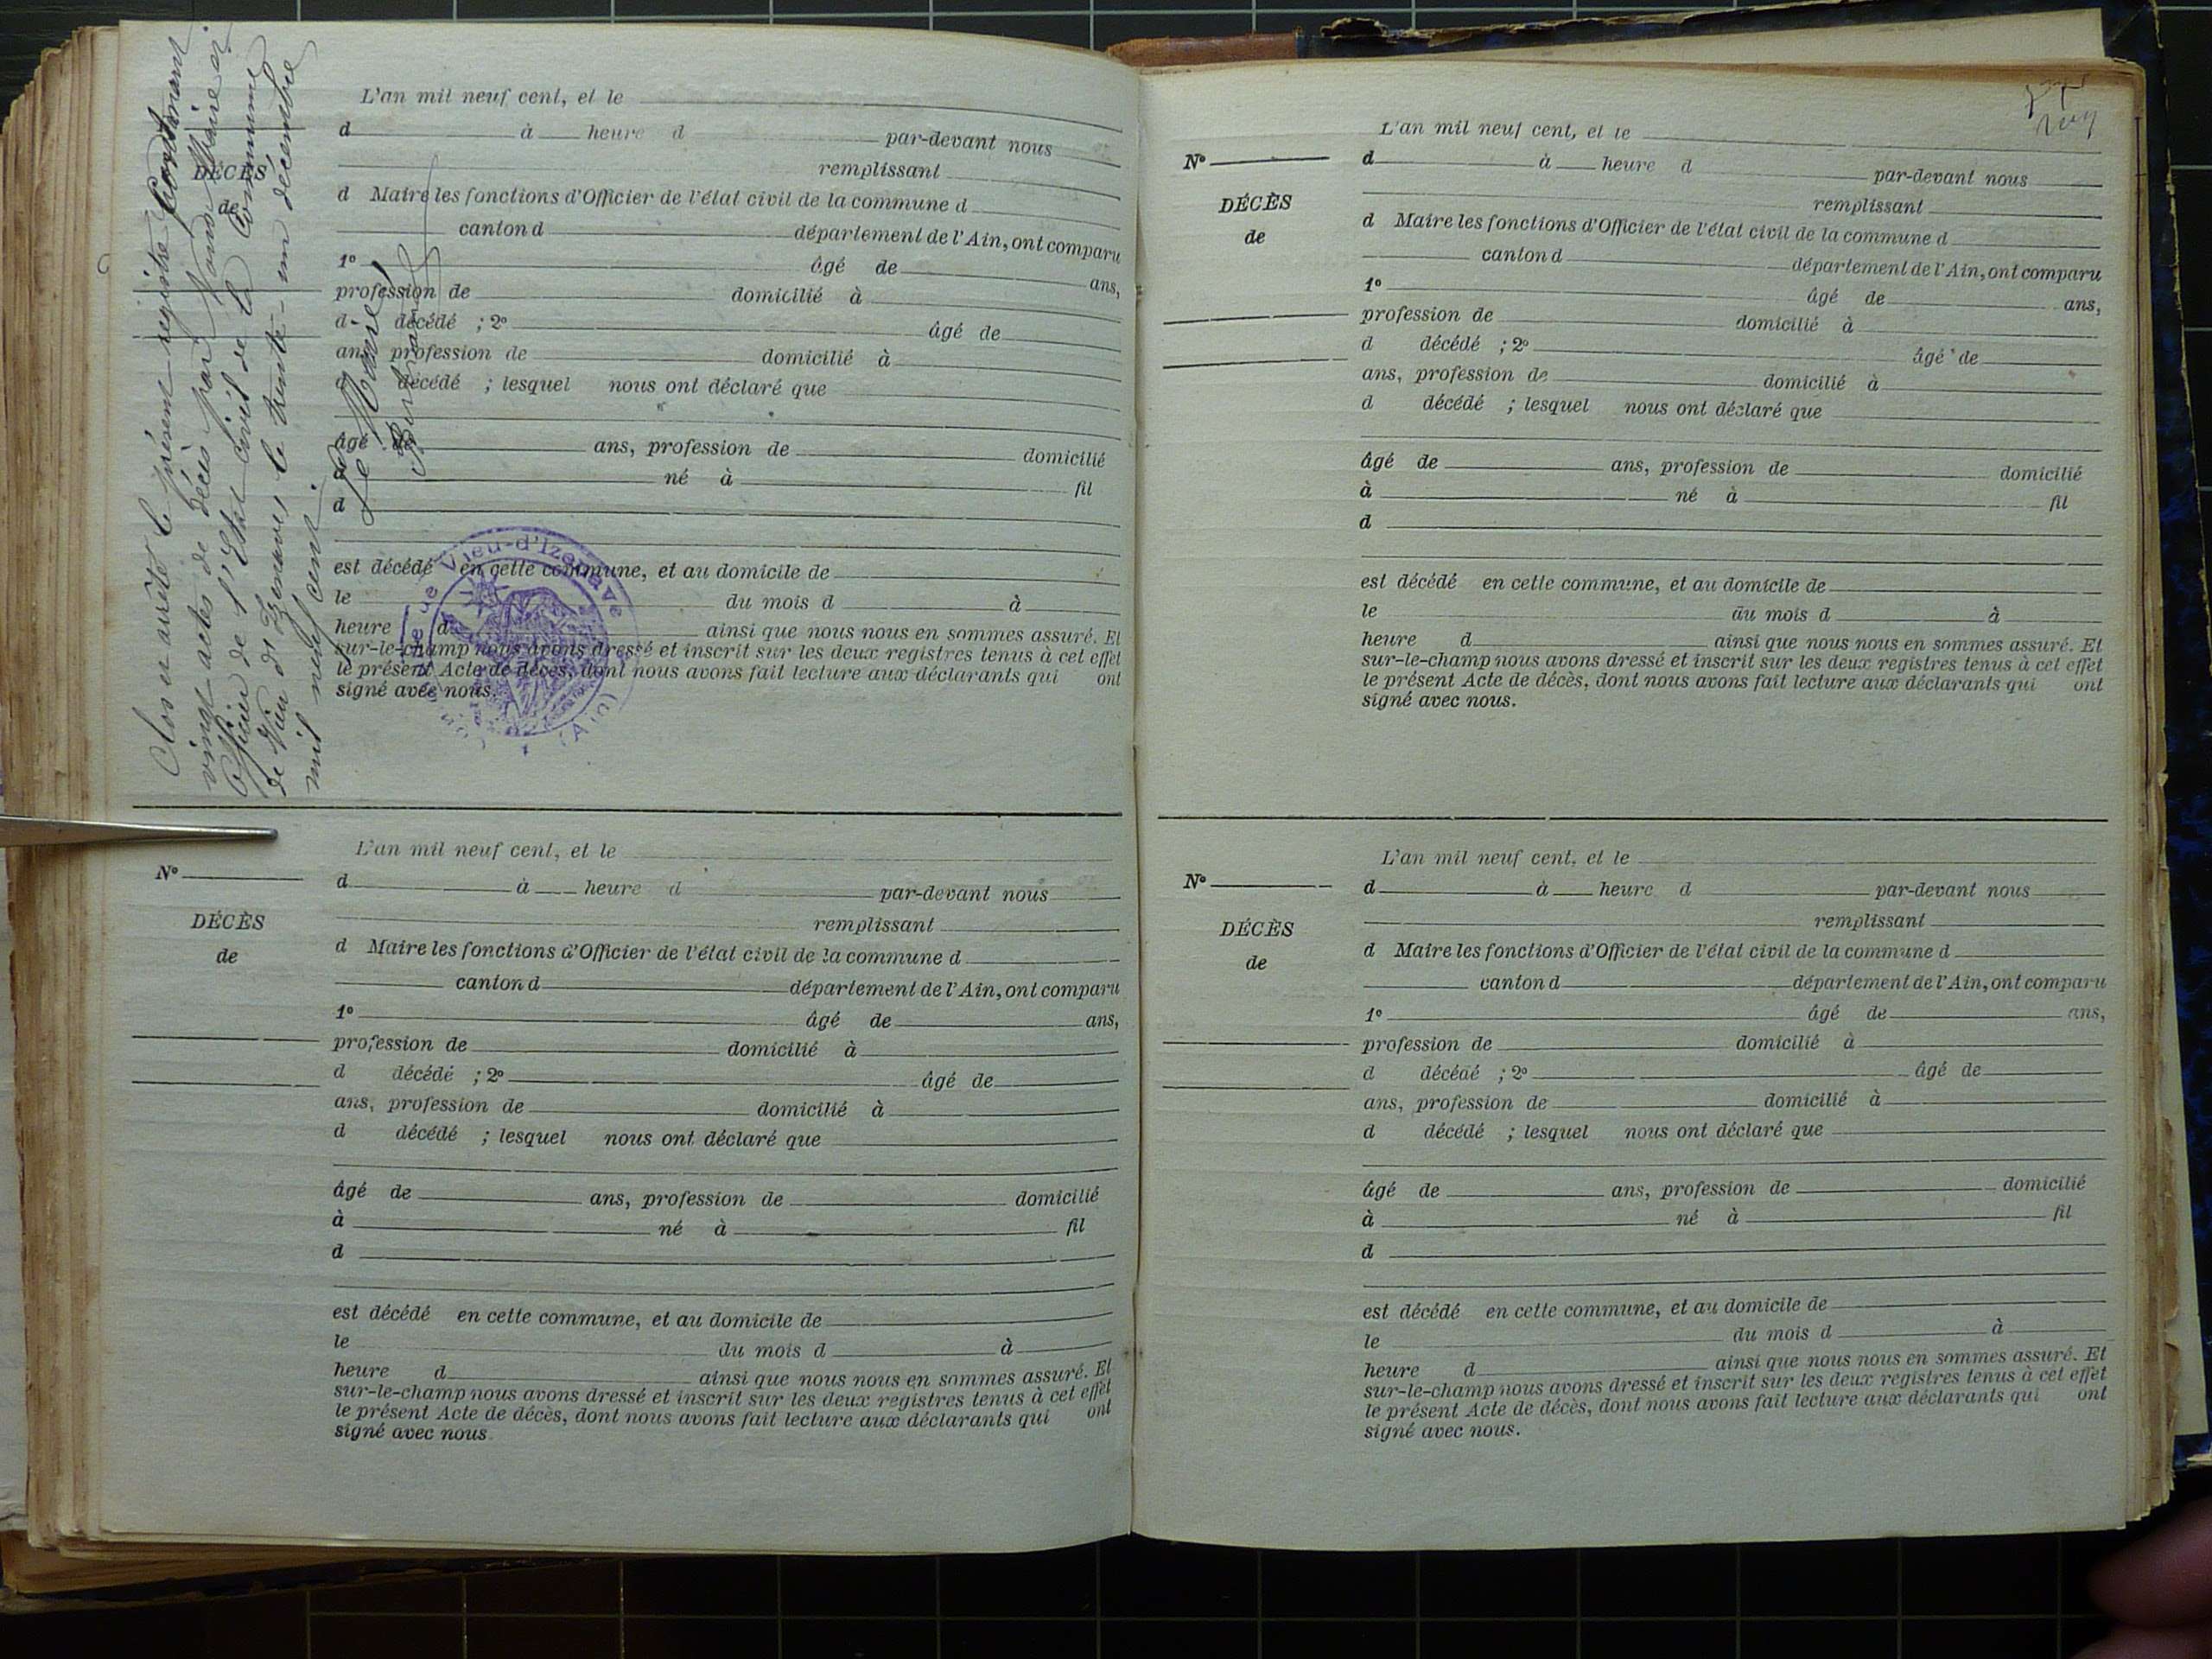 Clos et arrêté le présent registre contenant
vingt actes de décès par nous Maire et
Officier de l'Etat civil de la Commune
de Vieu d'Izenave, le trente-un décembre
mil neuf cent.
Le Maire
DÉCÈS
de
L'an mil neuf cent, et le
d à heure d par-devant nous
remplissant
d Maire les fonctions d'Officier de l'état civil de la commune d
canton d département de l'Ain, ont comparu
1° âgé de ans,
profession de domicilié à
d décédé ; 2° âgé de
ans, profession de domicilié à
d décédé ; lesquel nous ont déclaré que
âgé de ans, profession de domicilié
à né à fil
d
est décédé en cette commune, et au domicile de
le du mois d à
heure d ainsi que nous nous en sommes assuré. Et
sur-le-champ nous avons dressé et inscrit sur les deux registres tenus à cet effet
le présent Acte de décès, dont nous avons fait lecture aux déclarants qui ont
signé avec nous.
Vieu-d'Izenave
(Ain)
N°
DÉCÈS
de
L'an mil neuf cent, et le
d à heure d par-devant nous
remplissant
d Maire les fonctions d'Officier de l'état civil de la commune d
canton d département de l'Ain, ont comparu
1° âgé de ans,
profession de domicilié à
d décédé ; 2° âgé de
ans, profession de domicilié à
d décédé ; lesquel nous ont déclaré que
âgé de ans, profession de domicilié
à né à fil
d
est décédé en cette commune, et au domicile de
le du mois d à
heure d ainsi que nous nous en sommes assuré. Et
sur-le-champ nous avons dressé et inscrit sur les deux registres tenus à cet effet
le présent Acte de décès, dont nous avons fait lecture aux déclarants qui ont
signé avec nous.
N°
DÉCÈS
de
L'an mil neuf cent, et le
d à heure d par-devant nous
remplissant
d Maire les fonctions d'Officier de l'état civil de la commune d
canton d département de l'Ain, ont comparu
1° âgé de ans,
profession de domicilié à
d décédé ; 2° âgé de
ans, profession de domicilié à
d décédé ; lesquel nous ont déclaré que
âgé de ans, profession de domicilié
à né à fil
d
est décédé en cette commune, et au domicile de
le du mois d à
heure d ainsi que nous nous en sommes assuré. Et
sur-le-champ nous avons dressé et inscrit sur les deux registres tenus à cet effet
le présent Acte de décès, dont nous avons fait lecture aux déclarants qui ont
signé avec nous.
N°
DÉCÈS
de
L'an mil neuf cent, et le
d à heure d par-devant nous
remplissant
d Maire les fonctions d'Officier de l'état civil de la commune d
canton d département de l'Ain, ont comparu
1° âgé de ans,
profession de domicilié à
d décédé ; 2° âgé de
ans, profession de domicilié à
d décédé ; lesquel nous ont déclaré que
âgé de ans, profession de domicilié
à né à fil
d
est décédé en cette commune, et au domicile de
le du mois d à
heure d ainsi que nous nous en sommes assuré. Et
sur-le-champ nous avons dressé et inscrit sur les deux registres tenus à cet effet
le présent Acte de décès, dont nous avons fait lecture aux déclarants qui ont
signé avec nous.